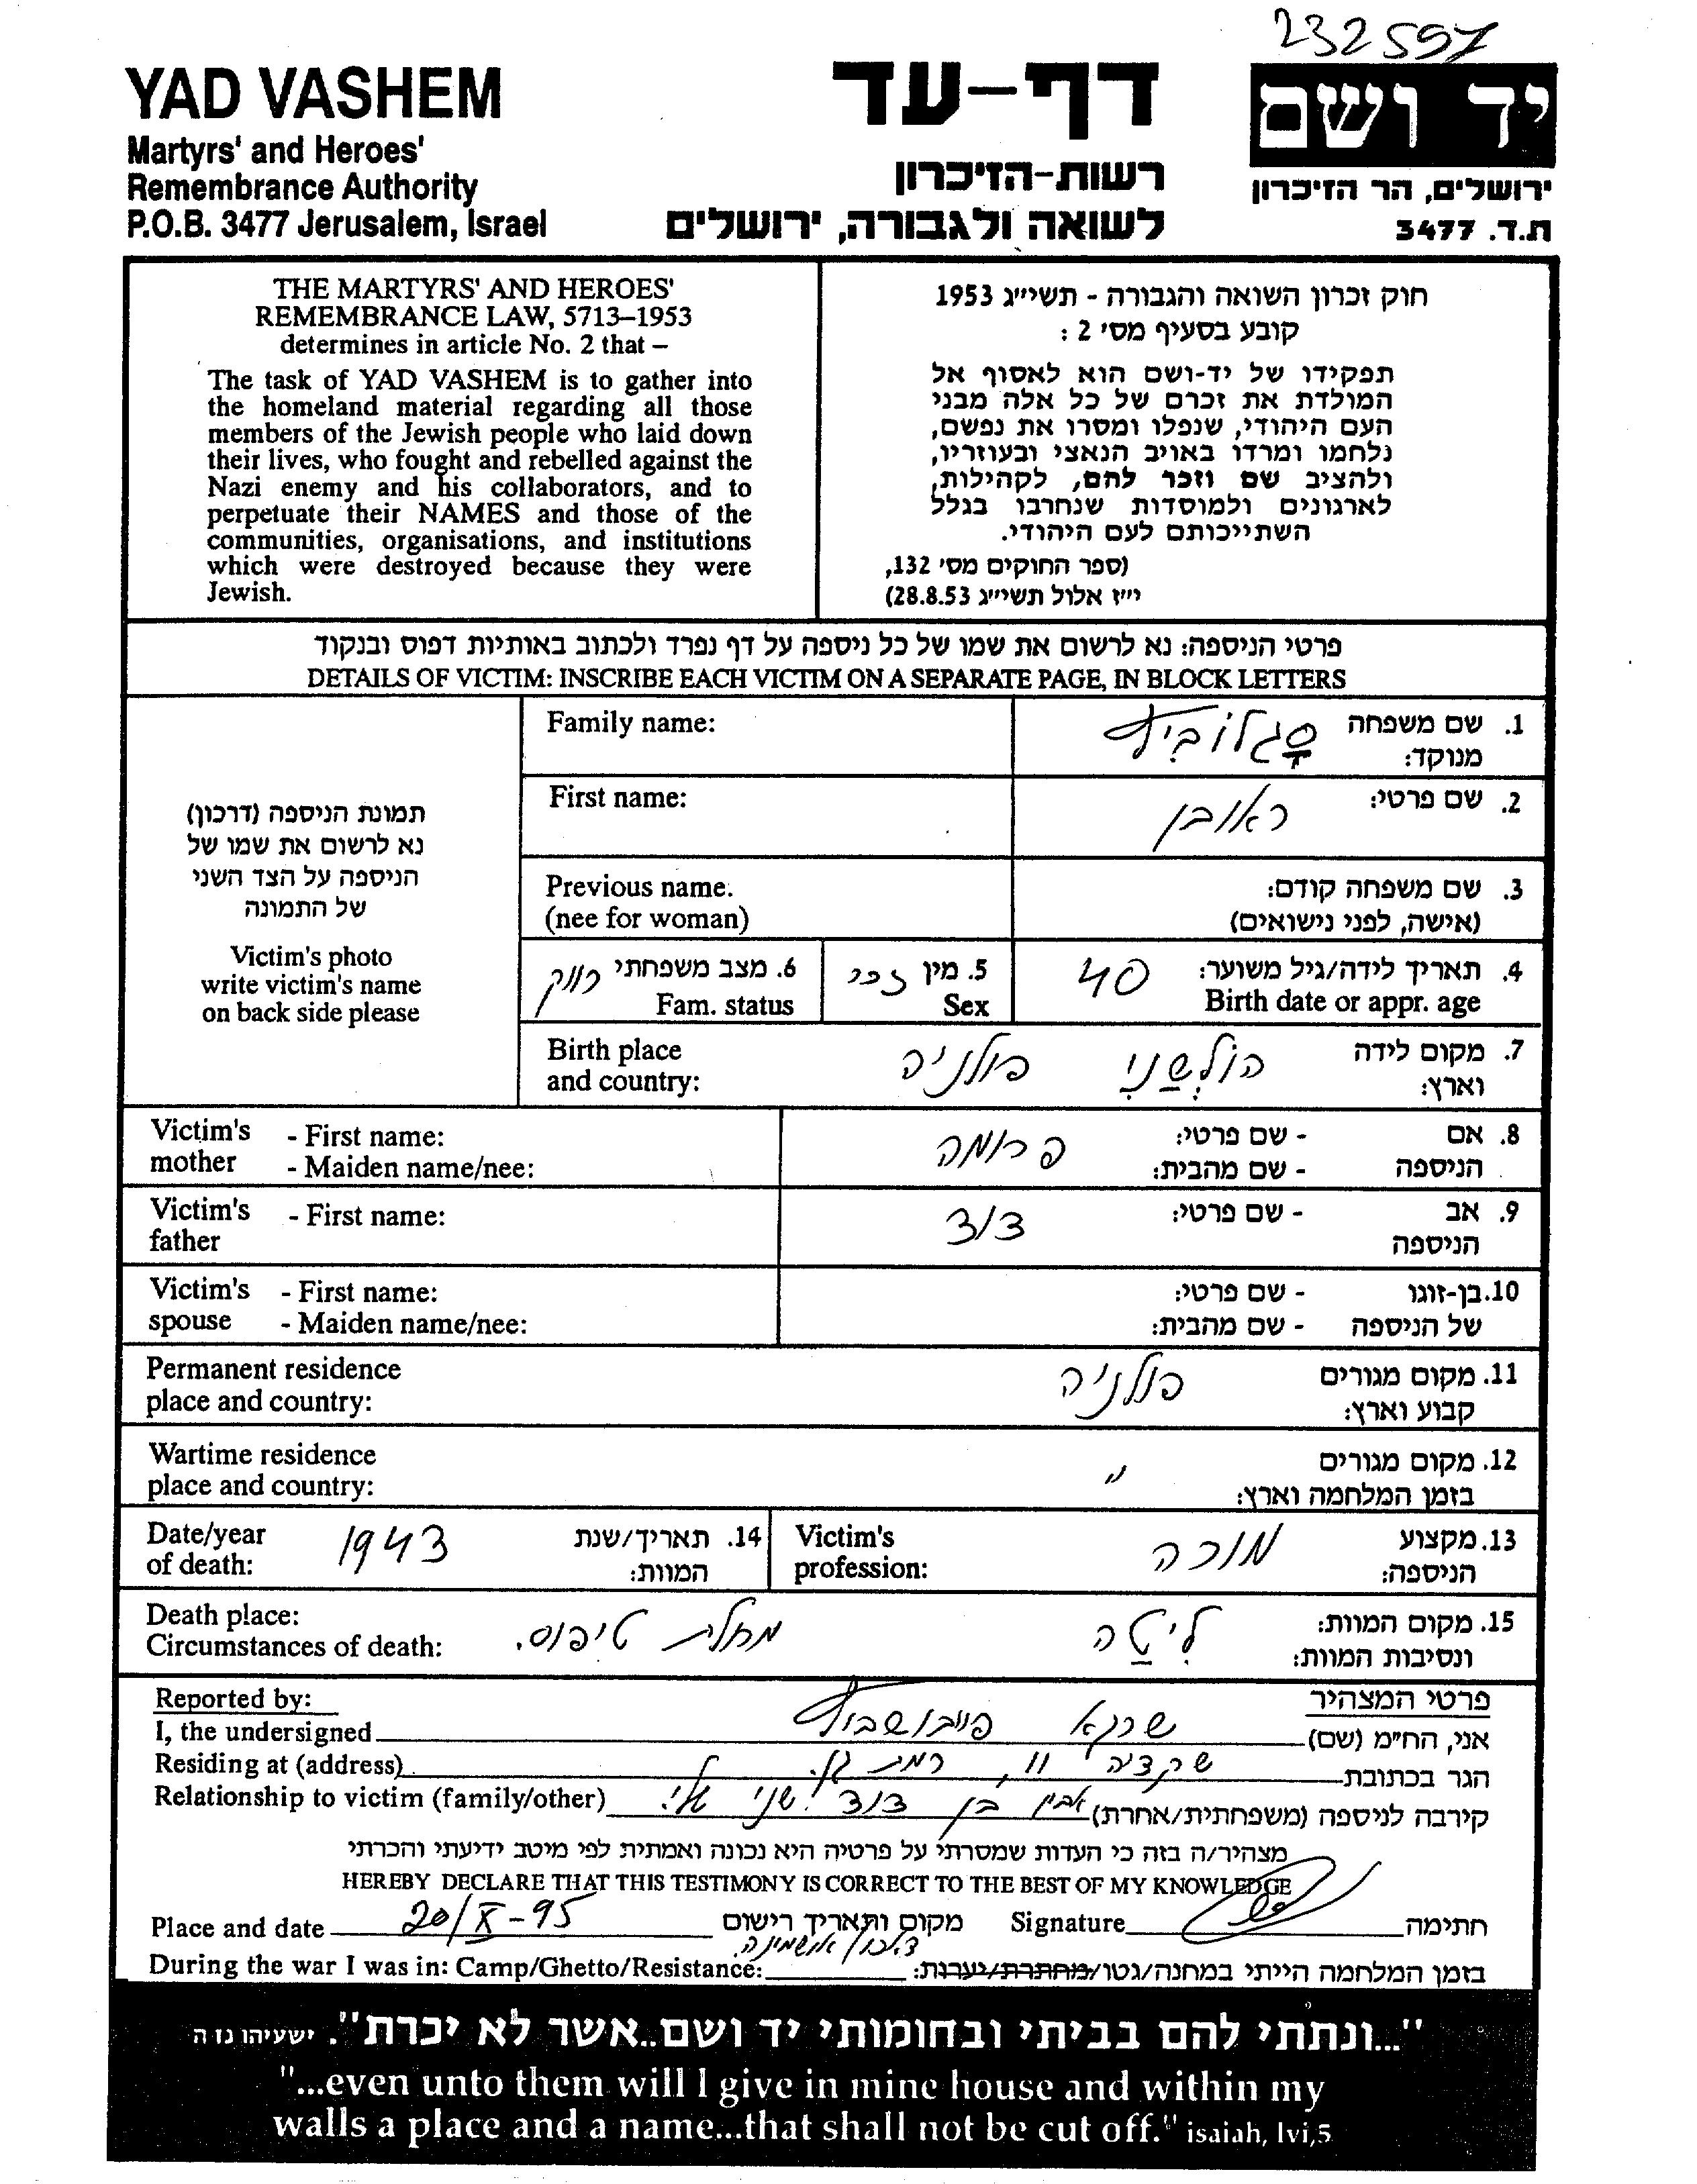 232597
YAD VASHEM
Martyrs' and Heroes'
Remembrance Authority
P.O.B. 3477 Jerusalem, Israel
דף-עד
רשות-הזיכרון
לשואה ולגבורה, ירושלים
יד ושם
ירושלים, הר הזיכרון
ת.ד. 3477
THE MARTYRS' AND HEROES'
REMEMBRANCE LAW, 5713–1953
determines in article No. 2 that –
The task of YAD VASHEM is to gather into
the homeland material regarding all those
members of the Jewish people who laid down
their lives, who fought and rebelled against the
Nazi enemy and his collaborators, and to
perpetuate their NAMES and those of the
communities, organisations, and institutions
which were destroyed because they were
Jewish.
חוק זכרון השואה והגבורה - תשי״ג 1953
קובע בסעיף מס׳ 2 :
תפקידו של יד-ושם הוא לאסוף אל
המולדת את זכרם של כל אלה מבני
העם היהודי, שנפלו ומסרו את נפשם,
נלחמו ומרדו באויב הנאצי ובעוזריו,
ולהציב שם וזכר להם, לקהילות,
לארגונים ולמוסדות שנחרבו בגלל
השתייכותם לעם היהודי.
(ספר החוקים מס׳ 132,
י״ז אלול תשי״ג 28.8.53)
פרטי הניספה: נא לרשום את שמו של כל ניספה על דף נפרד ולכתוב באותיות דפוס ובנקוד
DETAILS OF VICTIM: INSCRIBE EACH VICTIM ON A SEPARATE PAGE, IN BLOCK LETTERS
תמונת הניספה (דרכון)
נא לרשום את שמו של
הניספה על הצד השני
של התמונה
Victim's photo
write victim's name
on back side please
1. שם משפחה סֶגלוֹבִיץ Family name:
מנוקד:
2. שם פרטי: ראובן First name:
3. שם משפחה קודם: Previous name:
(אישה, לפני נישואים) (nee for woman)
4. תאריך לידה/גיל משוער: 40 5. מין זכר 6. מצב משפחתי רווק
Birth date or appr. age Sex Fam. status
7. מקום לידה הוֹלְשַנִי פולניה Birth place
וארץ: and country:
8. אם - שם פרטי: פרומה Victim's - First name:
הניספה - שם מהבית: mother - Maiden name/nee:
9. אב - שם פרטי: דוד Victim's - First name:
הניספה father
10. בן-זוגו - שם פרטי: Victim's - First name:
של הניספה - שם מהבית: spouse - Maiden name/nee:
11. מקום מגורים פולניה Permanent residence
קבוע וארץ: place and country:
12. מקום מגורים " Wartime residence
בזמן המלחמה וארץ: place and country:
13. מקצוע מורה Victim's 14. תאריך/שנת 1943 Date/year
הניספה: profession: המוות: of death:
15. מקום המוות: לִיטַה מחלת טיפוס. Death place:
ונסיבות המוות: Circumstances of death:
פרטי המצהיר Reported by:
אני, הח״מ (שם) שרגא פייבושביץ I, the undersigned
הגר בכתובת 11, רמת גן. Residing at (address)
קירבה לניספה (משפחתית/אחרת) בן דוד שני שלי. Relationship to victim (family/other)
מצהיר/ה בזה כי העדות שמסרתי על פרטיה היא נכונה ואמתית לפי מיטב ידיעתי והכרתי
HEREBY DECLARE THAT THIS TESTIMONY IS CORRECT TO THE BEST OF MY KNOWLEDGE
Place and date 20/X-95 מקום ותאריך רישום Signature חתימה
During the war I was in: Camp/Ghetto/Resistance: בזמן המלחמה הייתי במחנה/גטו/מחתרת/יערות:
"...ונתתי להם בביתי ובחומותי יד ושם..אשר לא יכרת". ישעיהו נו ה
"...even unto them will I give in mine house and within my
walls a place and a name...that shall not be cut off." isaiah, lvi,5